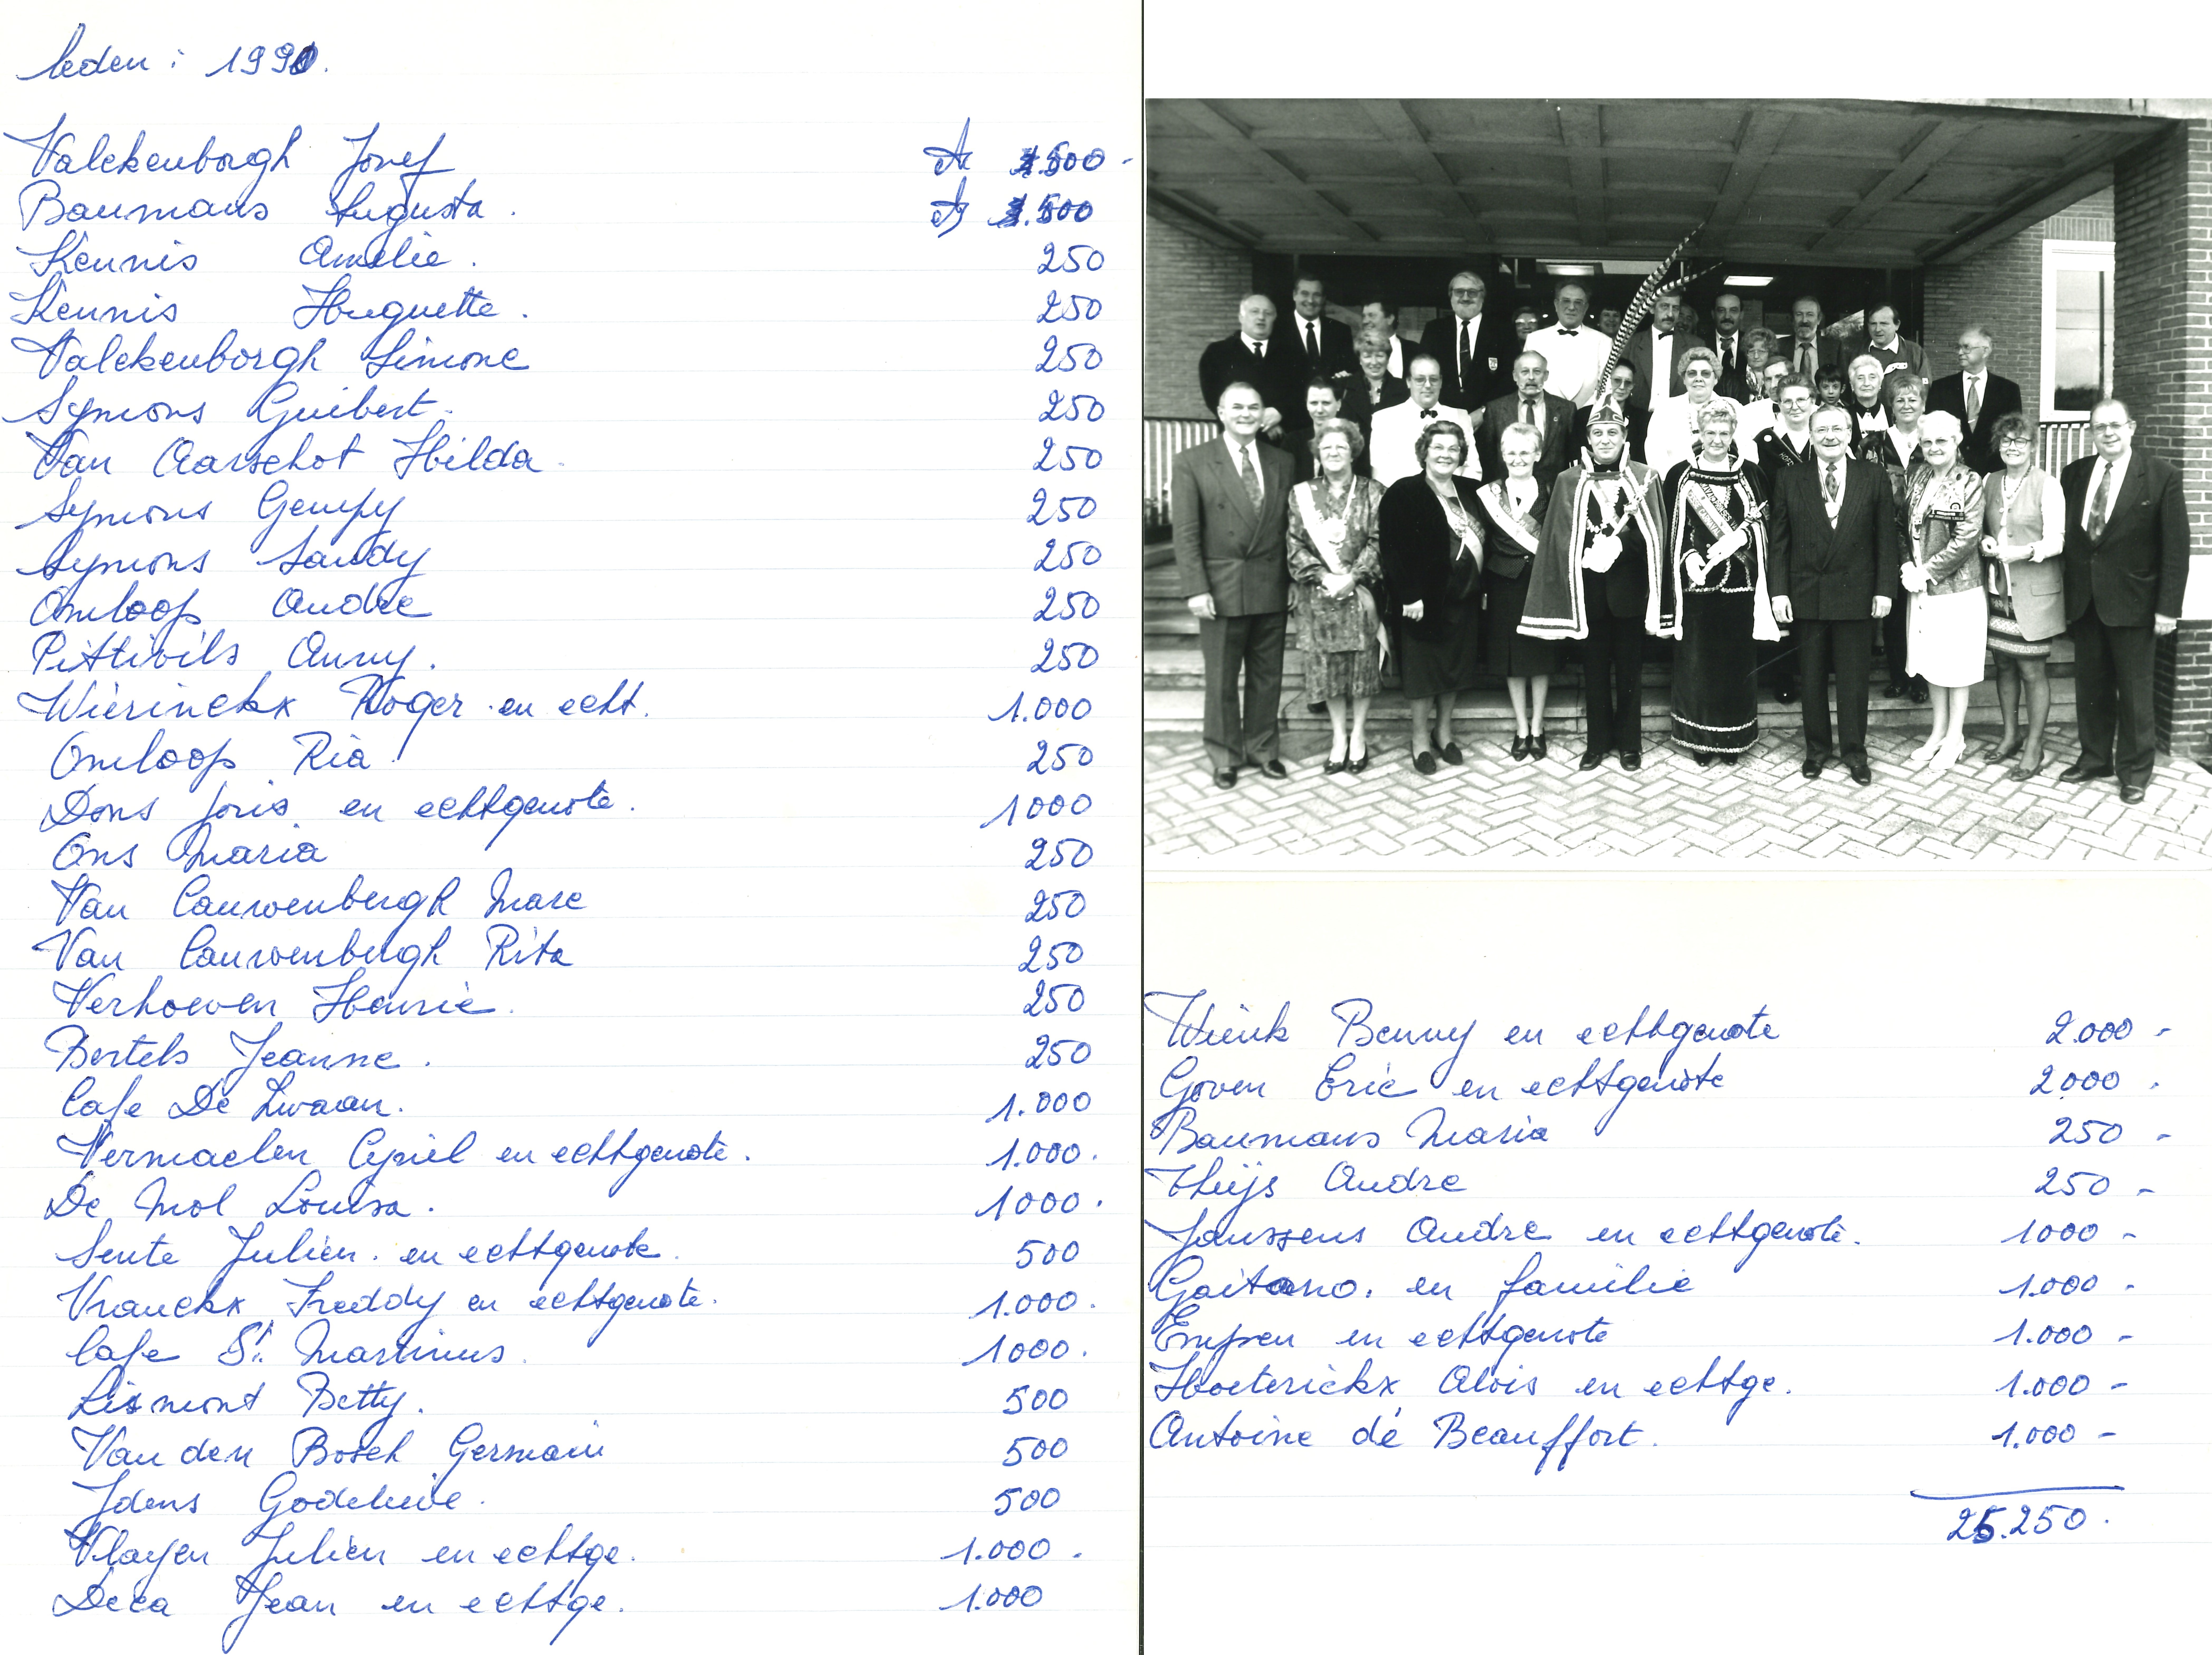 leden : 1990.
Valckenborgh Josef 1.500 -
Baumans Augusta . 1.500
Kennis Amelie . 250
Kennis Huguette . 250
Valckenborgh Simone 250
Symons Guibert . 250
Van Aarschot Hilda . 250
Symons Gempy 250
Symons Sandy 250
Omloop André 250
Pittivils Anny . 250
Wierinckx Roger en echt. 1.000
Omloop Ria . 250
Dons Joris en echtgenote . 1000
Ons Maria 250
Van Cauwenbergh Marc 250
Van Cauwenbergh Rita 250
Verhoeven Henrie . 250
Bertels Jeanne . 250
Cafe De Zwaan . 1.000
Vermaelen Cyriel en echtgenote . 1.000 .
De Mol Louisa . 1000 .
Sente Julien . en echtgenote . 500
Vranckx Freddy en echtgenote . 1.000 .
Cafe St. Martinus . 1000 .
Lismont Betty . 500
Van den Bosch Germain 500
Idens Godelieve . 500
Vlayen Julien en echtge. 1.000 .
Deca Jean en echtge. 1.000
Wienk Benny en echtgenote 2.000 -
Goven Eric en echtgenote 2.000 .
Baumans Maria 250 -
Thijs Andre 250 -
Janssens Andre en echtgenote . 1000 -
Gaitano . en familie 1.000 -
Empen en echtgenote 1.000 -
Hoeterickx Alois en echtge. 1.000 -
Antoine de Beauffort . 1.000 -
25.250 .